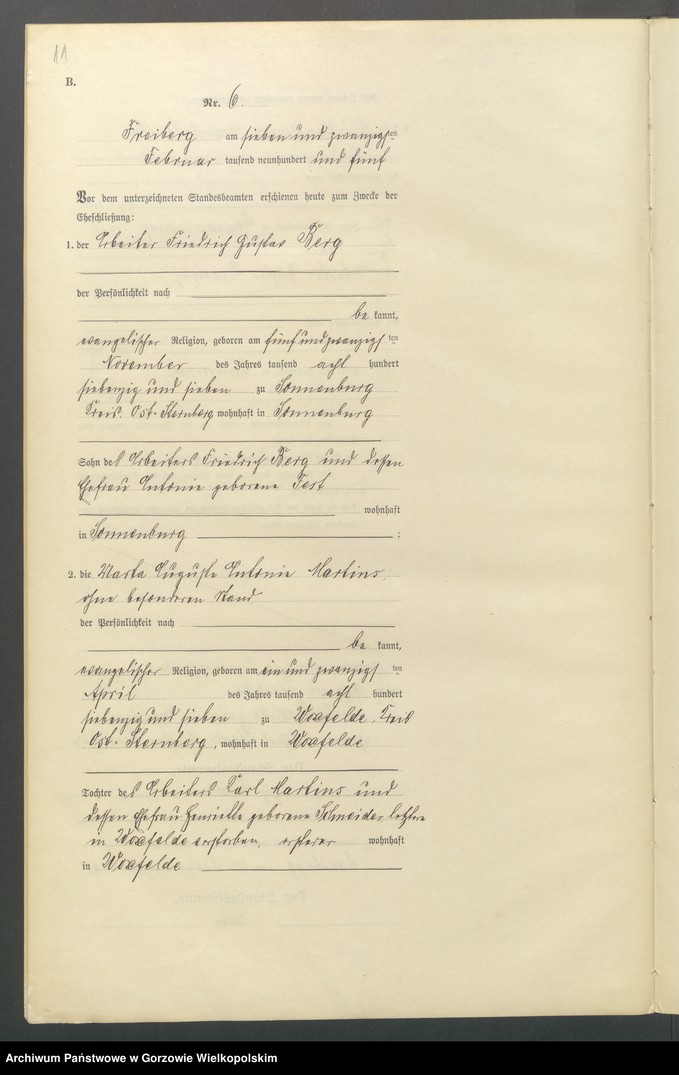 11
B.
Nr. 6.
Freiberg am sieben und zwanzigsten
Februar tausend neunhundert und fünf
Vor dem unterzeichneten Standesbeamten erschienen heute zum Zwecke der
Eheschließung:
1. der Arbeiter Friedrich Gustav Berg
der Persönlichkeit nach
be kannt,
evangelischer Religion, geboren am fünfundzwanzigsten
November des Jahres tausend acht hundert
siebenzig und sieben zu Sonnenburg
Kreis Ost-Sternberg wohnhaft in Sonnenburg
Sohn des Arbeiters Friedrich Berg und dessen
Ehefrau Antonie geborene Test
wohnhaft
in Sonnenburg ;
2. die Marta Auguste Antonie Martins,
ohne besonderen Stand
der Persönlichkeit nach
be kannt,
evangelischer Religion, geboren am ein und zwanzigsten
April des Jahres tausend acht hundert
siebenzig und sieben zu Woxfelde, Kreis
Ost-Sternberg, wohnhaft in Woxfelde
Tochter des Arbeiters Karl Martins und
dessen Ehefrau Henriette geborene Schneider, letztere
in Woxfelde verstorben, ersterer wohnhaft
in Woxfelde
Archiwum Państwowe w Gorzowie Wielkopolskim